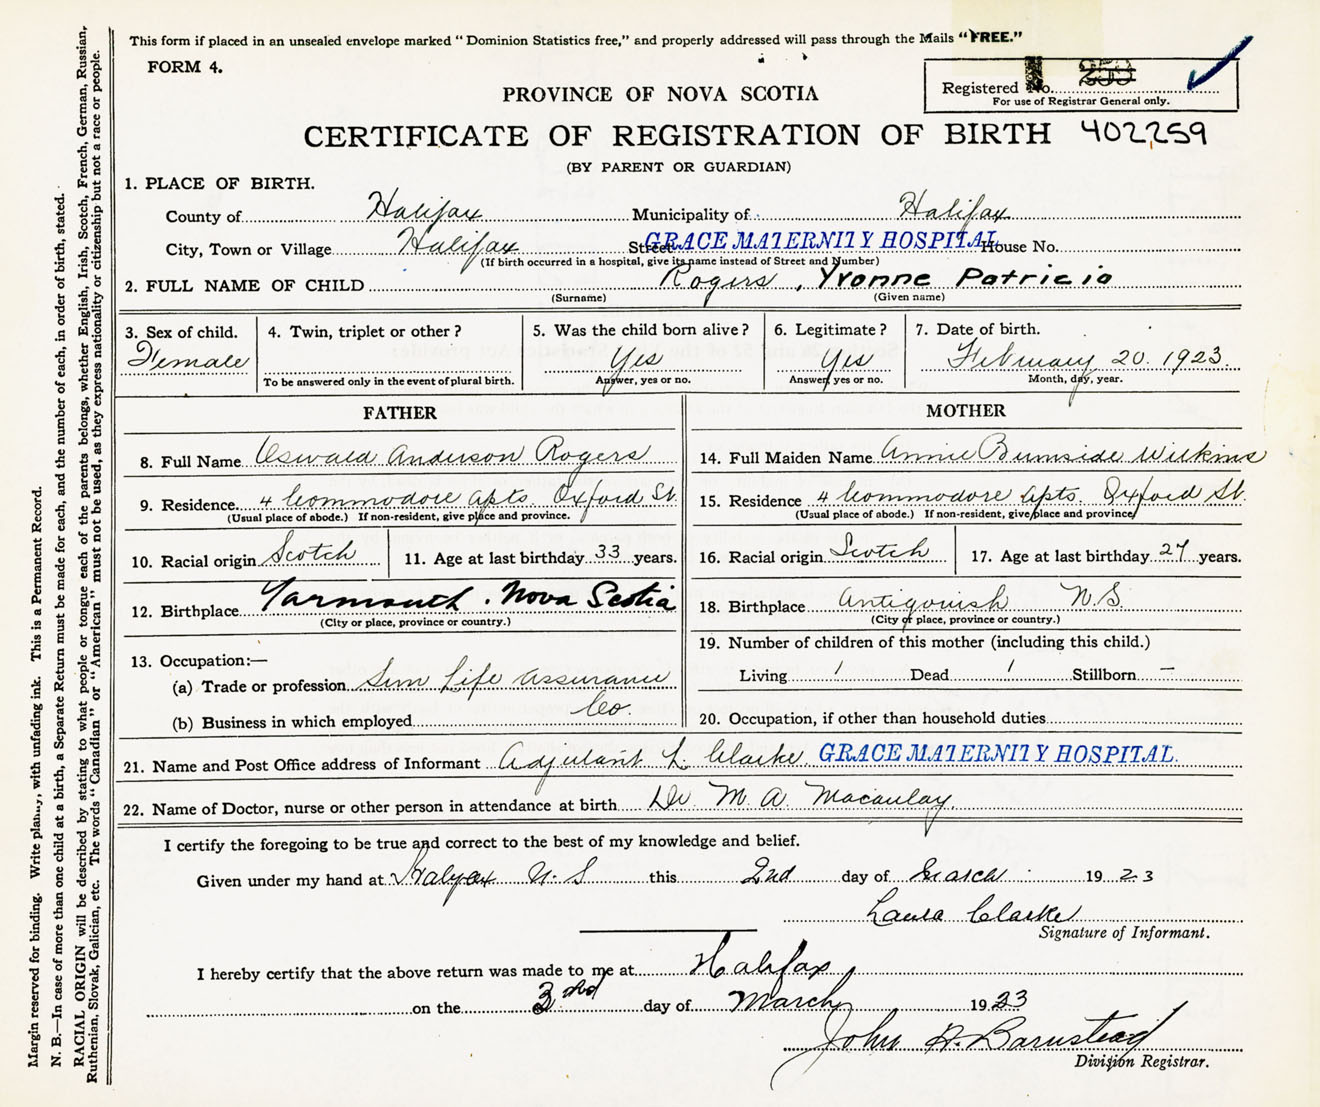 This form if placed in an unsealed envelope marked "Dominion Statistics free," and properly addressed will pass through the Mails "FREE."
FORM 4.
Registered No. 
For use of Registrar General only.
PROVINCE OF NOVA SCOTIA
CERTIFICATE OF REGISTRATION OF BIRTH 402259
(BY PARENT OR GUARDIAN)
1. PLACE OF BIRTH.
County of Halifax Municipality of Halifax
City, Town or Village Halifax Street GRACE MATERNITY HOSPITAL House No.
(If birth occurred in a hospital, give its name instead of Street and Number)
2. FULL NAME OF CHILD Rogers, Yvonne Patricia
(Surname) (Given name)
3. Sex of child. 4. Twin, triplet or other? 5. Was the child born alive? 6. Legitimate? 7. Date of birth.
Female Yes Yes February 20. 1923.
To be answered only in the event of plural birth. Answer, yes or no. Answer, yes or no. Month, day, year.
FATHER MOTHER
8. Full Name Oswald Anderson Rogers 14. Full Maiden Name Annie Burnside Wilkins
9. Residence 4 Commodore Apts. Oxford St. 15. Residence 4 Commodore Apts. Oxford St.
(Usual place of abode.) If non-resident, give place and province. (Usual place of abode.) If non-resident, give place and province
10. Racial origin Scotch 11. Age at last birthday 33 years. 16. Racial origin Scotch 17. Age at last birthday 27 years.
12. Birthplace Yarmouth. Nova Scotia 18. Birthplace Antigonish N.S.
(City or place, province or country.) (City or place, province or country.)
13. Occupation:— 19. Number of children of this mother (including this child.)
(a) Trade or profession Sun Life Assurance Living 1 Dead 1 Stillborn —
Co.
(b) Business in which employed 20. Occupation, if other than household duties
21. Name and Post Office address of Informant Adjutant L. Clarke. GRACE MATERNITY HOSPITAL.
22. Name of Doctor, nurse or other person in attendance at birth Dr. M. A. Macaulay.
I certify the foregoing to be true and correct to the best of my knowledge and belief.
Given under my hand at Halifax N.S this 2nd day of March 1923
Laura Clarke
Signature of Informant.
I hereby certify that the above return was made to me at Halifax
on the 3rd day of March 1923
John A. Barnstead
Division Registrar.
Margin reserved for binding. Write plainly, with unfading ink. This is a Permanent Record.
N. B.—In case of more than one child at a birth, a Separate Return must be made for each, and the number of each, in order of birth, stated.
RACIAL ORIGIN will be described by stating to what people or tongue each of the parents belongs, whether English, Irish, Scotch, French, German, Russian,
Ruthenian, Slovak, Galician, etc. The words "Canadian" or "American" must not be used, as they express nationality or citizenship but not a race or people.